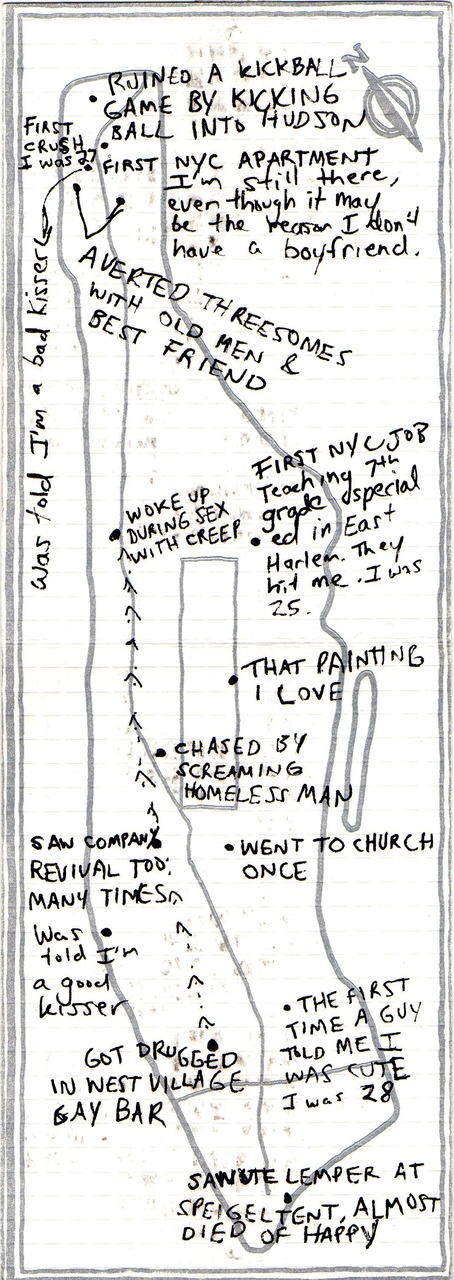 N
RUINED A KICKBALL
GAME BY KICKING
BALL INTO HUDSON
FIRST
CRUSH
I was 27
FIRST NYC APARTMENT
I'm still there,
even though it may
be the reason I don't
have a boyfriend.
Was told I'm a bad kisser
AVERTED THREESOMES
WITH OLD MEN &
BEST FRIEND
FIRST NYC JOB
Teaching 7th
grade special
ed in East
Harlem. They
hit me. I was
25.
WOKE UP
DURING SEX
WITH CREEP
THAT PAINTING
I LOVE
CHASED BY
SCREAMING
HOMELESS MAN
SAW COMPANY
REVIVAL TOO
MANY TIMES
WENT TO CHURCH
ONCE
Was
told I'm
a good
kisser
THE FIRST
TIME A GUY
TOLD ME I
WAS CUTE
I was 28
GOT DRUGGED
IN WEST VILLAGE
GAY BAR
SAW UTE LEMPER AT
SPEIGELTENT, ALMOST
DIED OF HAPPY